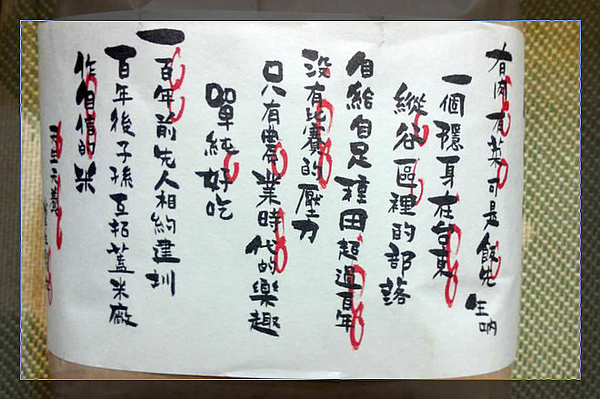 有肉有菜可是飯先生吶
一個隱身在台東
縱谷區裡的部落
自給自足種田超過百年
沒有比賽的壓力
只有農業時代的樂趣
單純好吃
一百年前先人相約建圳
百年後子孫互招蓋米廠
作自信的米